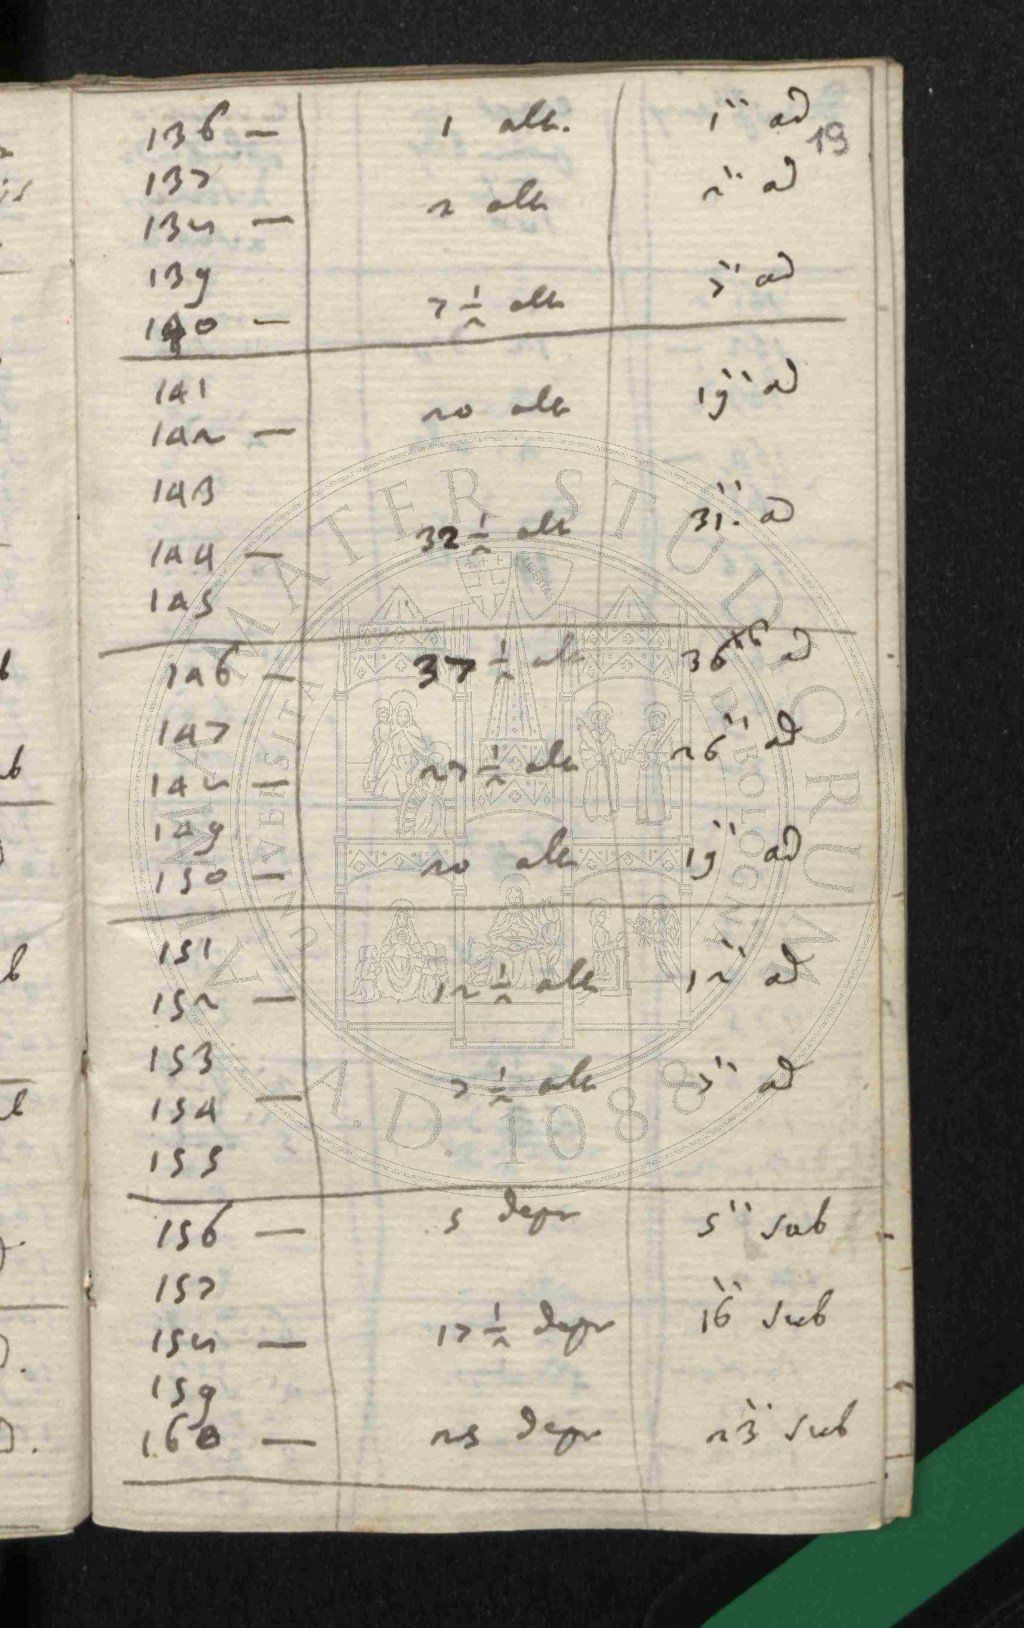 136 — 1 alt. 1'' ad
19
137
138 — 2 alt 2'' ad
139
140 — 7 1/2 alt 7'' ad
141
142 — 20 alt 19'' ad
143
144 — 32 1/2 alt 31'' ad
145
146 — 37 1/2 alt 36'' ad
147
148 — 27 1/2 alt 26'' ad
149
150 — 20 alt 19'' ad
151
152 — 12 1/2 alt 12'' ad
153
154 — 7 1/2 alt 7'' ad
155
156 — 5 depr 5'' sub
157
158 — 17 1/2 depr 16'' sub
159
160 — 25 depr 23'' sub
ALMA MATER STUDIORUM
UNIVERSITÀ DI BOLOGNA
A.D. 1088